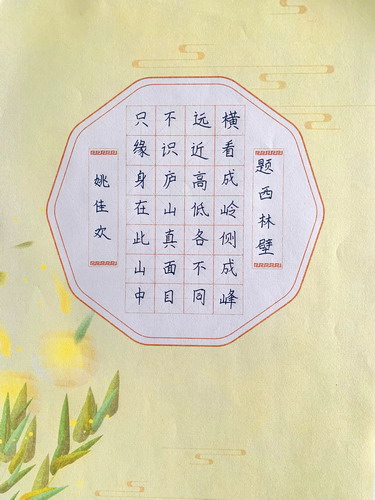 题西林壁
横看成岭侧成峰
远近高低各不同
不识庐山真面目
只缘身在此山中
姚佳欢